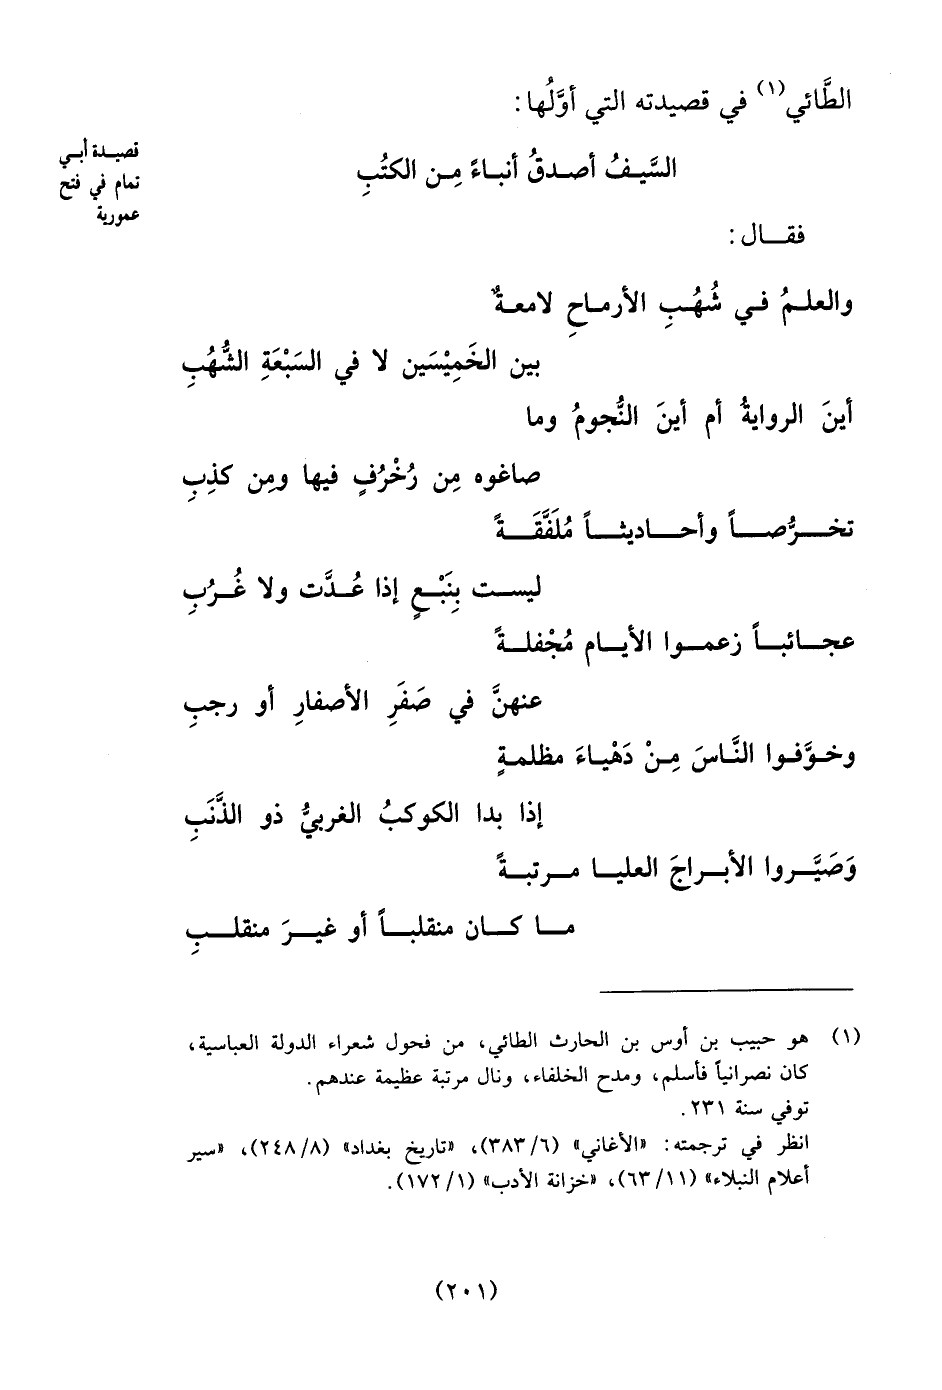 الطَّائي(١) في قصيدته التي أوَّلُها:
قصيدة أبي
تمام في فتح
عمورية
السَّيفُ أصدقُ أنباءً مِن الكتُبِ
فقال:
والعلمُ في شُهُبِ الأرماحِ لامعةٌ
بين الخَمِيْسَين لا في السَبْعَةِ الشُّهُبِ
أينَ الروايةُ أم أينَ النُّجومُ وما
صاغوه مِن زُخْرُفٍ فيها ومِن كذِبِ
تخرُّصاً وأحاديثاً مُلَفَّقَةً
ليست بِنَبْعٍ إذا عُدَّت ولا غُرُبِ
عجائباً زعموا الأيام مُجْفلةً
عنهنَّ في صَفَرِ الأصفارِ أو رجبِ
وخوَّفوا النَّاسَ مِنْ دَهْياءَ مظلمةٍ
إذا بدا الكوكبُ الغربيُّ ذو الذَّنَبِ
وَصَيَّروا الأبراجَ العليا مرتبةً
ما كان منقلباً أو غيرَ منقلبِ
(١) هو حبيب بن أوس بن الحارث الطائي، من فحول شعراء الدولة العباسية،
كان نصرانياً فأسلم، ومدح الخلفاء، ونال مرتبة عظيمة عندهم.
توفي سنة ٢٣١.
انظر في ترجمته: «الأغاني» (٣٨٣/٦)، «تاريخ بغداد» (٢٤٨/٨)، «سير
أعلام النبلاء» (٦٣/١١)، «خزانة الأدب» (١٧٢/١).
(٢٠١)